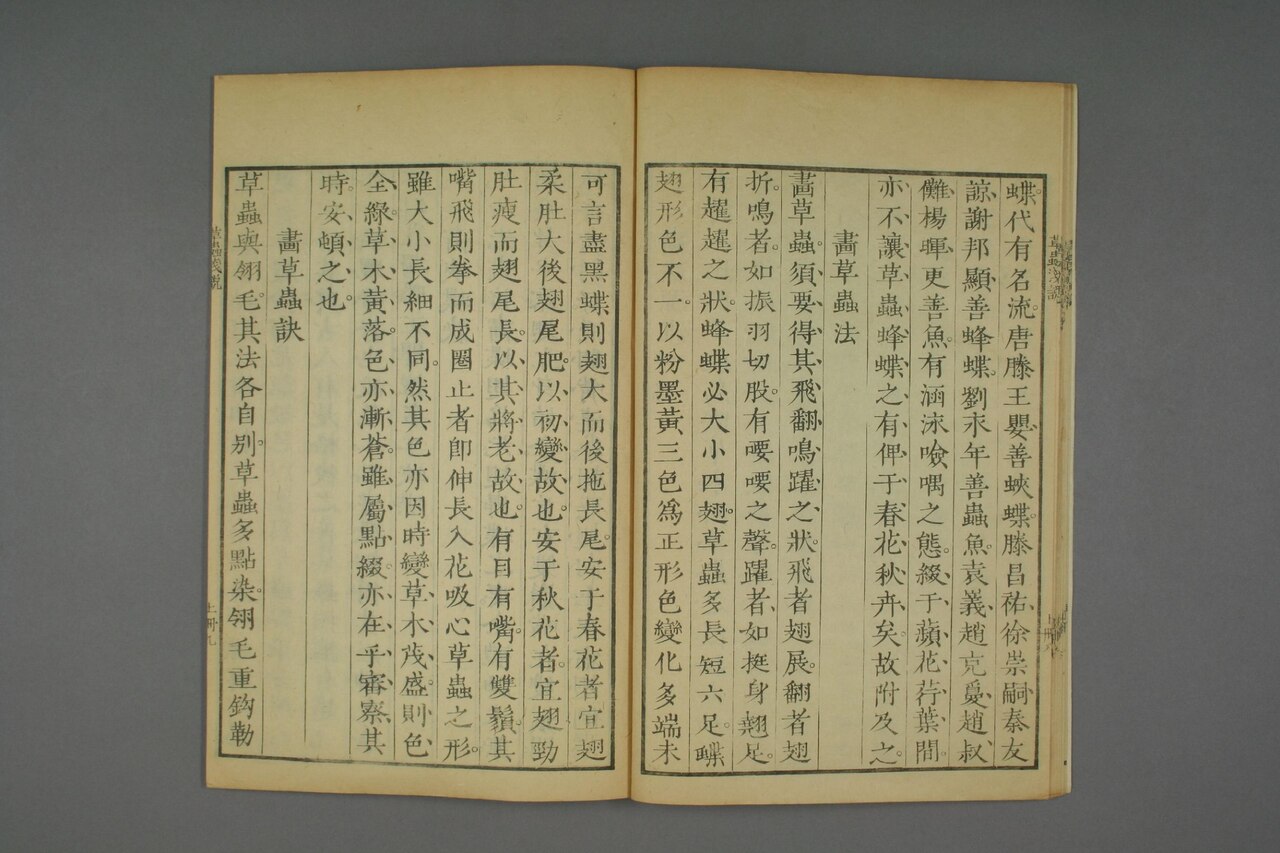 蝶。代有名流。唐滕王嬰善蛺蝶。滕昌祐、徐崇嗣、秦友
諒、謝邦顯、善蜂蝶。劉永年善蟲魚。袁羲、趙克夐、趙叔
儺、楊暉、更善魚。有涵泳噞喁之態。綴于蘋花荇葉間。
亦不讓草蟲蜂蝶之有俾于春花秋卉矣。故附及之。
畵草蟲法
畵草蟲。須要得其飛翻鳴躍之狀。飛者翅展。翻者翅
折。鳴者如振羽切股。有喓喓之聲。躍者如挺身翹足。
有趯趯之狀。蜂蝶必大小四翅。草蟲多長短六足。蝶
翅形色不一。以粉墨黃三色爲正。形色變化多端。未
可言盡。黑蝶則翅大而後拖長尾。安于春花者宜翅
柔肚大後翅尾肥。以初變故也。安于秋花者。宜翅勁
肚瘦而翅尾長。以其將老故也。有目有嘴。有雙鬚。其
嘴飛則拳而成圈止者卽伸長入花吸心草蟲之形。
雖大小長細不同。然其色亦因時變。草木茂盛。則色
全綠。草木黃落。色亦漸蒼。雖屬點綴。亦在乎審察其
時。安頓之也。
畵草蟲訣
草蟲與翎毛。其法各自別。草蟲多點染。翎毛重鈎勒